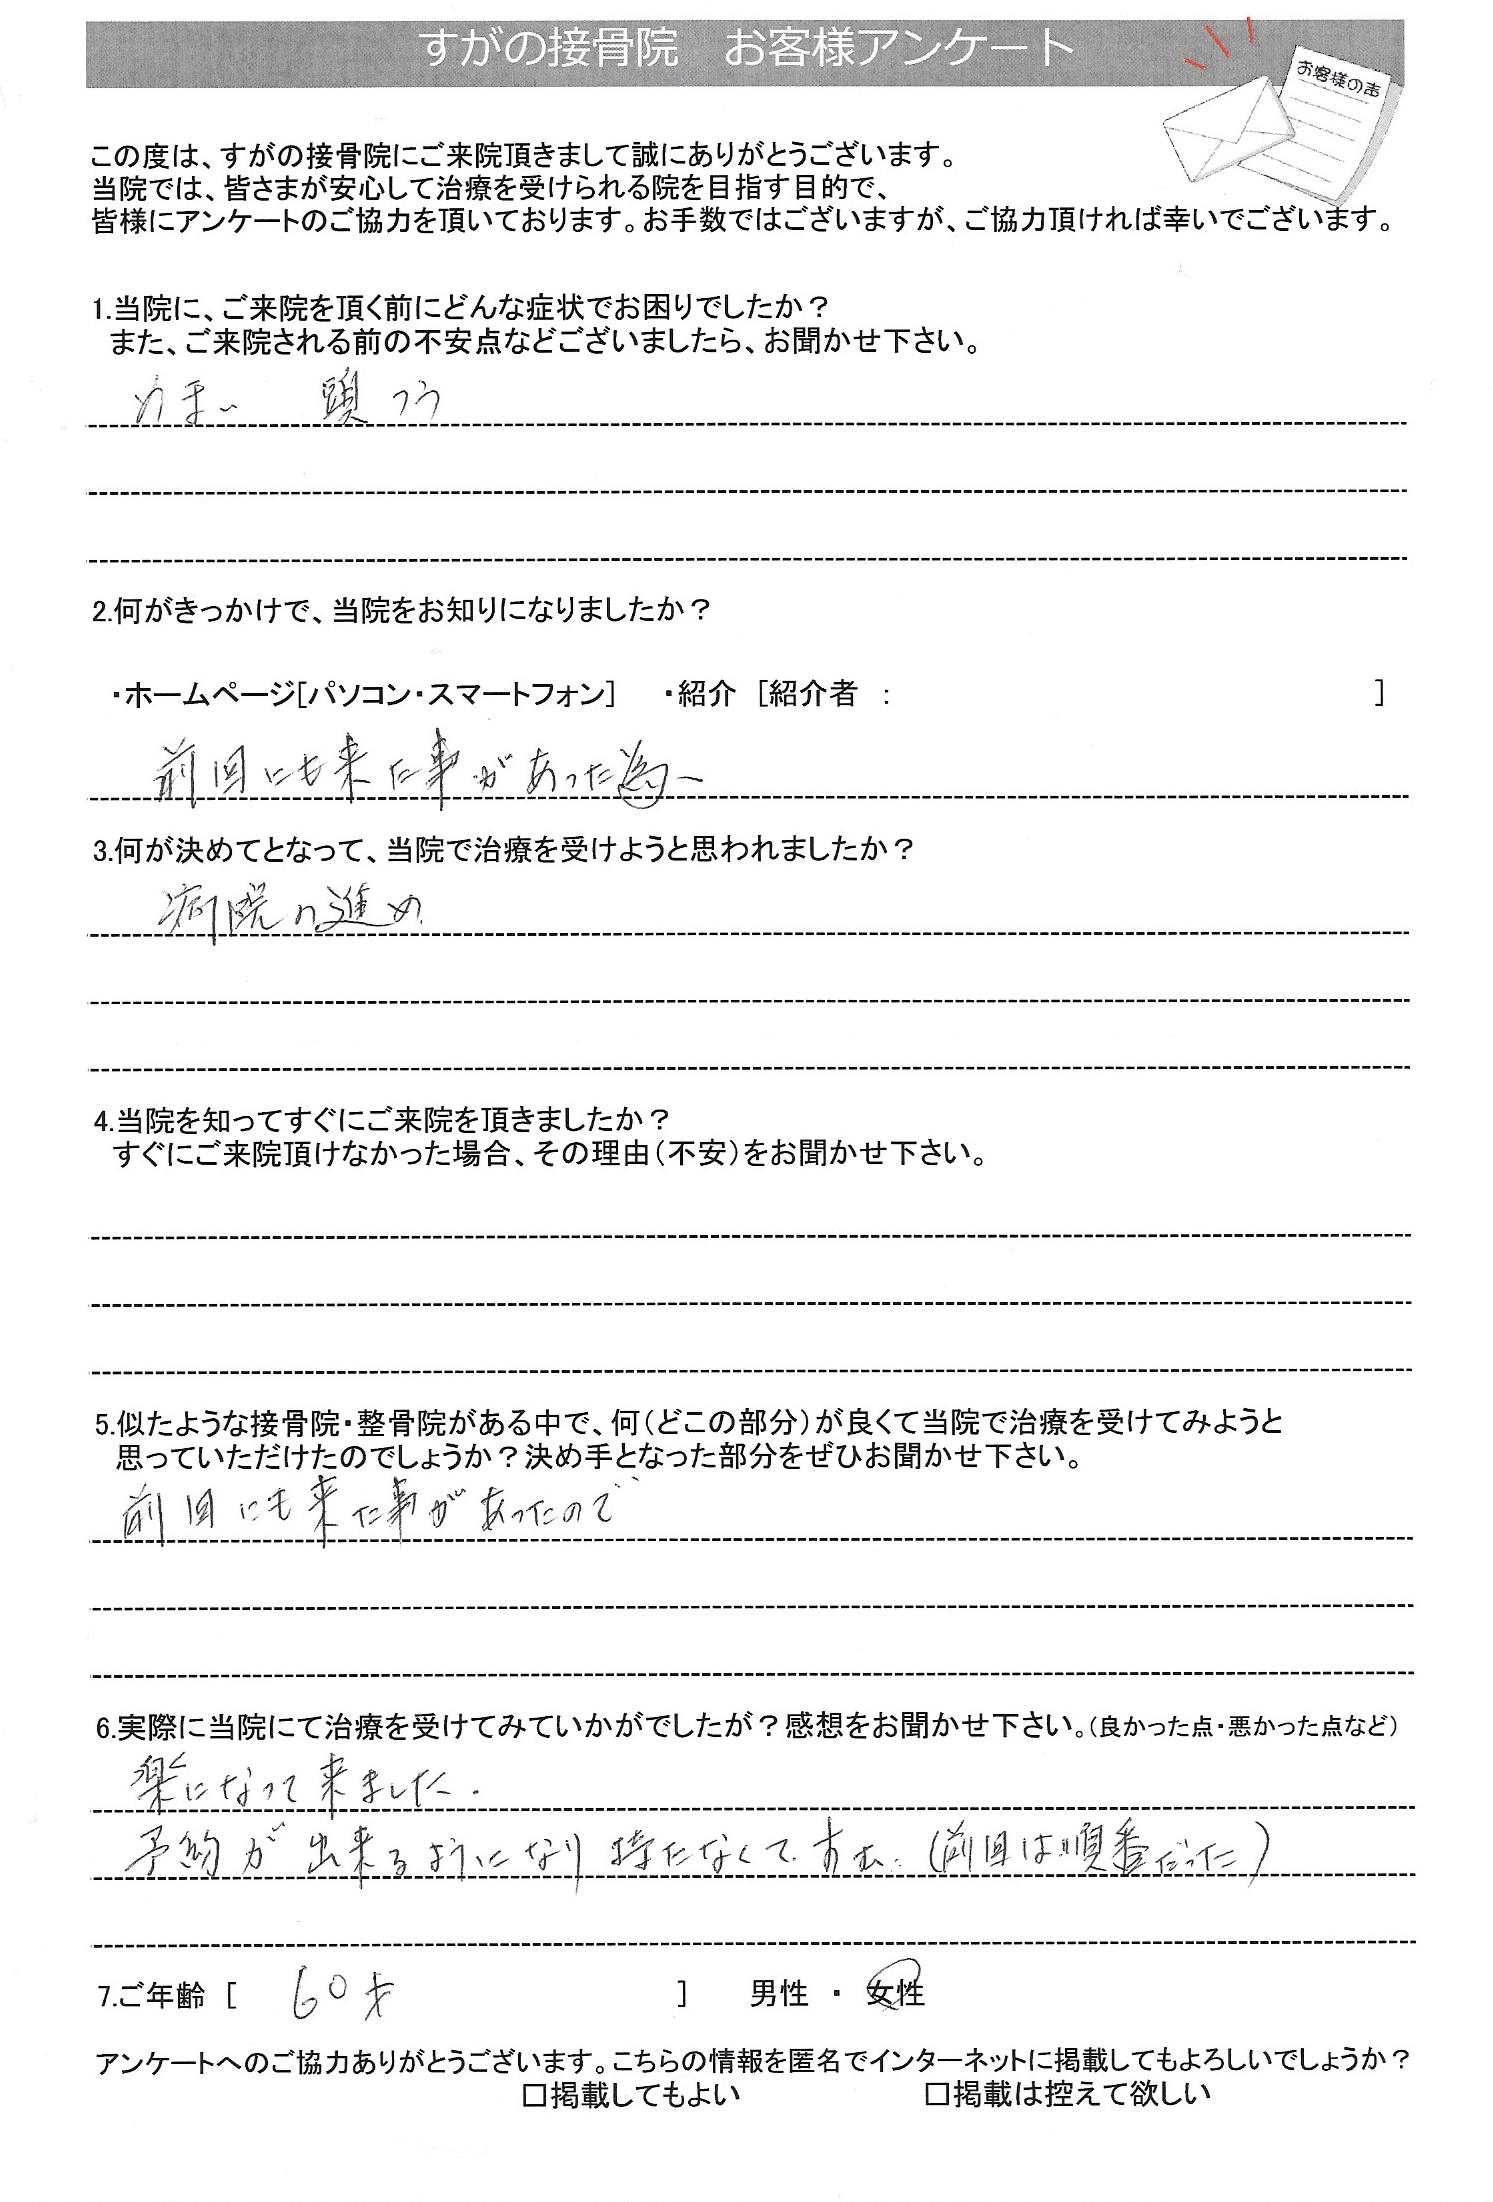 すがの接骨院 お客様アンケート
お客様の声
この度は、すがの接骨院にご来院頂きまして誠にありがとうございます。
当院では、皆さまが安心して治療を受けられる院を目指す目的で、
皆様にアンケートのご協力を頂いております。お手数ではございますが、ご協力頂ければ幸いでございます。
1.当院に、ご来院を頂く前にどんな症状でお困りでしたか？
また、ご来院される前の不安点などございましたら、お聞かせ下さい。
めまい 頭つう
2.何がきっかけで、当院をお知りになりましたか？
・ホームページ[パソコン・スマートフォン] ・紹介 [紹介者 : ]
前回にも来た事があった為
3.何が決めてとなって、当院で治療を受けようと思われましたか？
病院の進め
4.当院を知ってすぐにご来院を頂きましたか？
すぐにご来院頂けなかった場合、その理由(不安)をお聞かせ下さい。
5.似たような接骨院・整骨院がある中で、何(どこの部分)が良くて当院で治療を受けてみようと
思っていただけたのでしょうか？決め手となった部分をぜひお聞かせ下さい。
前回にも来た事があったので
6.実際に当院にて治療を受けてみていかがでしたが？感想をお聞かせ下さい。(良かった点・悪かった点など)
楽になって来ました.
予約が出来るようになり待たなくてすむ. (前回は順番だった)
7.ご年齢 [ 60才 ] 男性 ・ 女性
アンケートへのご協力ありがとうございます。こちらの情報を匿名でインターネットに掲載してもよろしいでしょうか？
□掲載してもよい □掲載は控えて欲しい